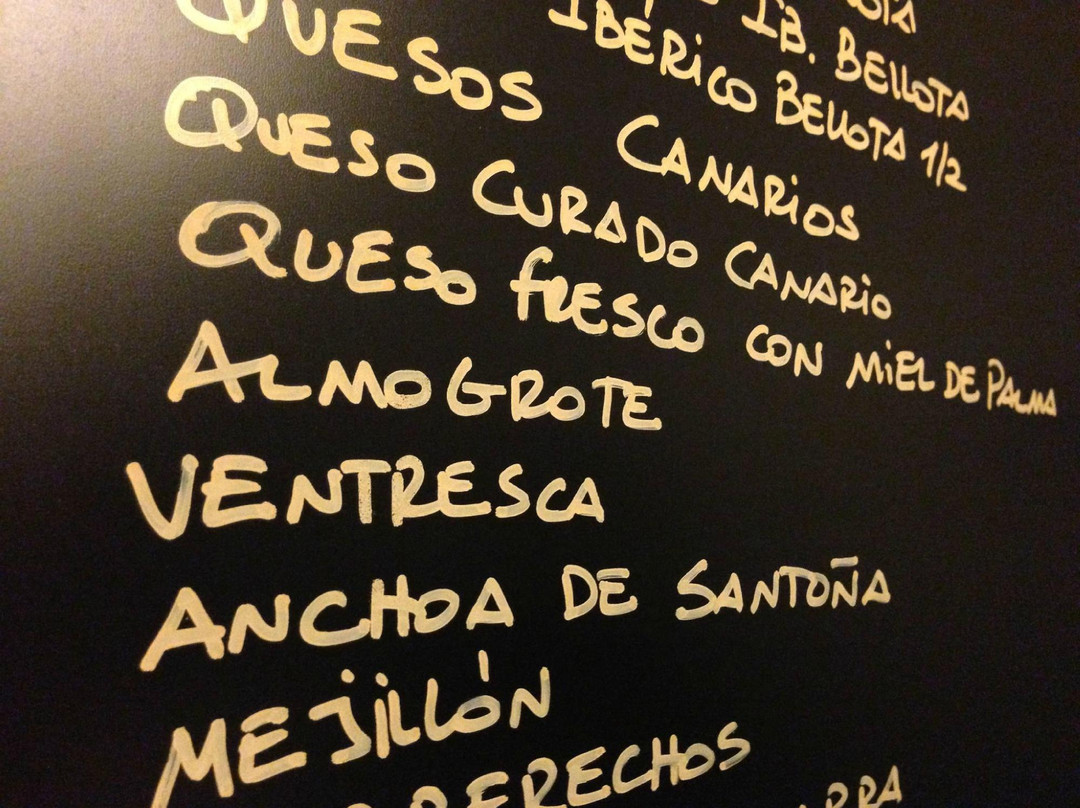 IB. BELLOTA
IBÉRICO BELLOTA 1/2
QUESOS CANARIOS
QUESO CURADO CANARIO
QUESO FRESCO CON MIEL DE PALMA
ALMOGROTE
VENTRESCA
ANCHOA DE SANTOÑA
MEJILLÓN
BERBERECHOS